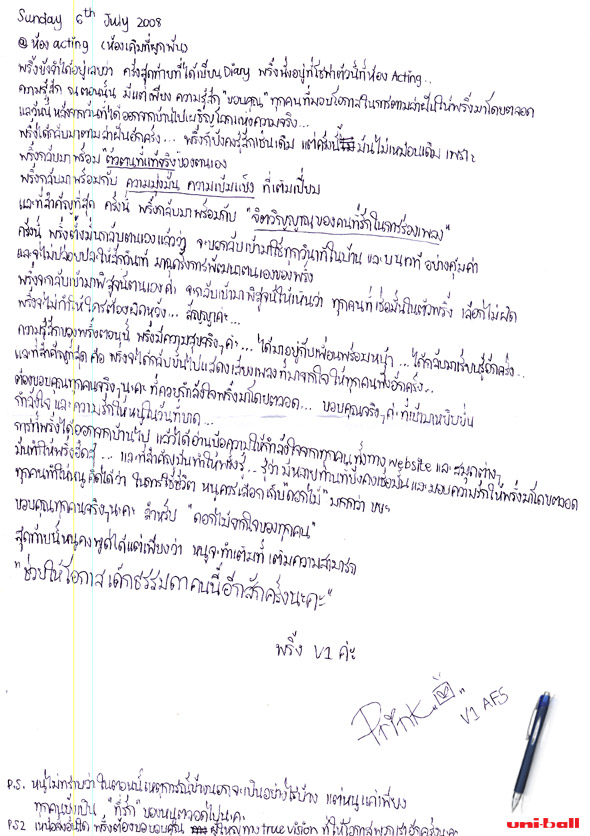 Sunday 6th July 2008
@ ห้อง acting (ห้องเดิมที่ผูกพัน)
พริ้งยังจำได้อยู่เลยว่า ครั้งสุดท้ายที่ได้เขียน Diary พริ้งนั่งอยู่ที่โซฟาตัวนี้ที่ห้อง Acting...
ความรู้สึก ณ ตอนนั้น มีแต่เพียง ความรู้สึก "ขอบคุณ" ทุกคนที่มอบโอกาสในการตามล่าฝันให้พริ้งมาโดยตลอด
และวันนี้ หลังจากวันที่ได้ออกจากบ้านไปเผชิญโลกแห่งความจริง...
พริ้งได้กลับมาตามล่าฝันอีกครั้ง... พริ้งก็ยังคงรู้สึกเช่นเดิม แต่ครั้งนี้ มันไม่เหมือนเดิม เพราะ
พริ้งกลับมาพร้อม "ตัวตนที่แท้จริง" ของตนเอง
พริ้งกลับมาพร้อมกับ ความมุ่งมั่น ความเข้มแข็ง ที่เต็มเปี่ยม
และที่สำคัญที่สุด ครั้งนี้ พริ้งกลับมาพร้อมกับ "จิตวิญญาณของคนที่รักในการร้องเพลง"
ครั้งนี้ พริ้งตั้งมั่นกับตนเองแล้วว่า จะขอกลับเข้ามาใช้ทุกวินาทีในบ้าน และ บนเวที อย่างคุ้มค่า
และจะไม่ปล่อยปละให้สักวินาที มาหยุดรั้งการพัฒนาตนเองของพริ้ง
พริ้งจะกลับเข้ามาพิสูจน์ตนเองค่ะ จะกลับเข้ามาพิสูจน์ให้เห็นว่า ทุกคนที่เชื่อมั่นในตัวพริ้ง เลือกไม่ผิด
พริ้งจะไม่ทำให้ใครต้องผิดหวัง... สัญญาค่ะ...
ความรู้สึกของพริ้งตอนนี้ พริ้งมีความสุขจริงๆค่ะ... ได้มาอยู่กับเพื่อนพร้อมหน้า... ได้กลับมาเรียนรู้อีกครั้ง...
และที่สำคัญที่สุด คือ พริ้งจะได้กลับขึ้นไปแสดงเสียงเพลงที่มาจากใจ ให้ทุกคนฟังอีกครั้ง..
ต้องขอบคุณทุกคนจริงๆนะคะ ที่คอยให้กำลังใจพริ้งมาโดยตลอด... ขอบคุณจริงๆค่ะ ที่เข้ามาหยิบยื่น
กำลังใจ และ ความรักให้หนูในวันที่ขาด...
การที่พริ้งได้ออกจากบ้านไป แล้วได้อ่านข้อความให้กำลังใจจากทุกคน ทั้งทาง website และ สมุดต่างๆ
มันทำให้พริ้งฮึดสู้... และที่สำคัญมันทำให้พริ้งรู้... รู้ว่า มีหลายท่านที่ยังคงเชื่อมั่น และ มอบความรักให้พริ้งมาโดยตลอด
ทุกคนทำให้หนูคิดได้ว่า ในการใช้ชีวิต หนูควรเลือกเก็บ "ดอกไม้" มากกว่า ขยะ
ขอบคุณทุกคนจริงๆนะคะ สำหรับ "ดอกไม้จากใจของทุกคน"
สุดท้ายนี้ หนูคงพูดได้แต่เพียงว่า หนูจะทำเต็มที่ เต็มความสามารถ
"ช่วยให้โอกาสเด็กธรรมดาคนนี้อีกสักครั้งนะคะ"
พริ้ง V1 ค่ะ
V1 AF5
P.S. หนูไม่ทราบว่า ในตอนนี้เหตุการณ์ข้างนอกจะเป็นอย่างไรบ้าง แต่หนูแค่เพียง
ทุกคนยังเป็น "ที่รัก" ของหนูตลอดไปนะคะ
P.S.2 เหนือสิ่งอื่นใด พริ้งต้องขอขอบคุณ ทาง true vision ที่ให้โอกาส
uni-ball